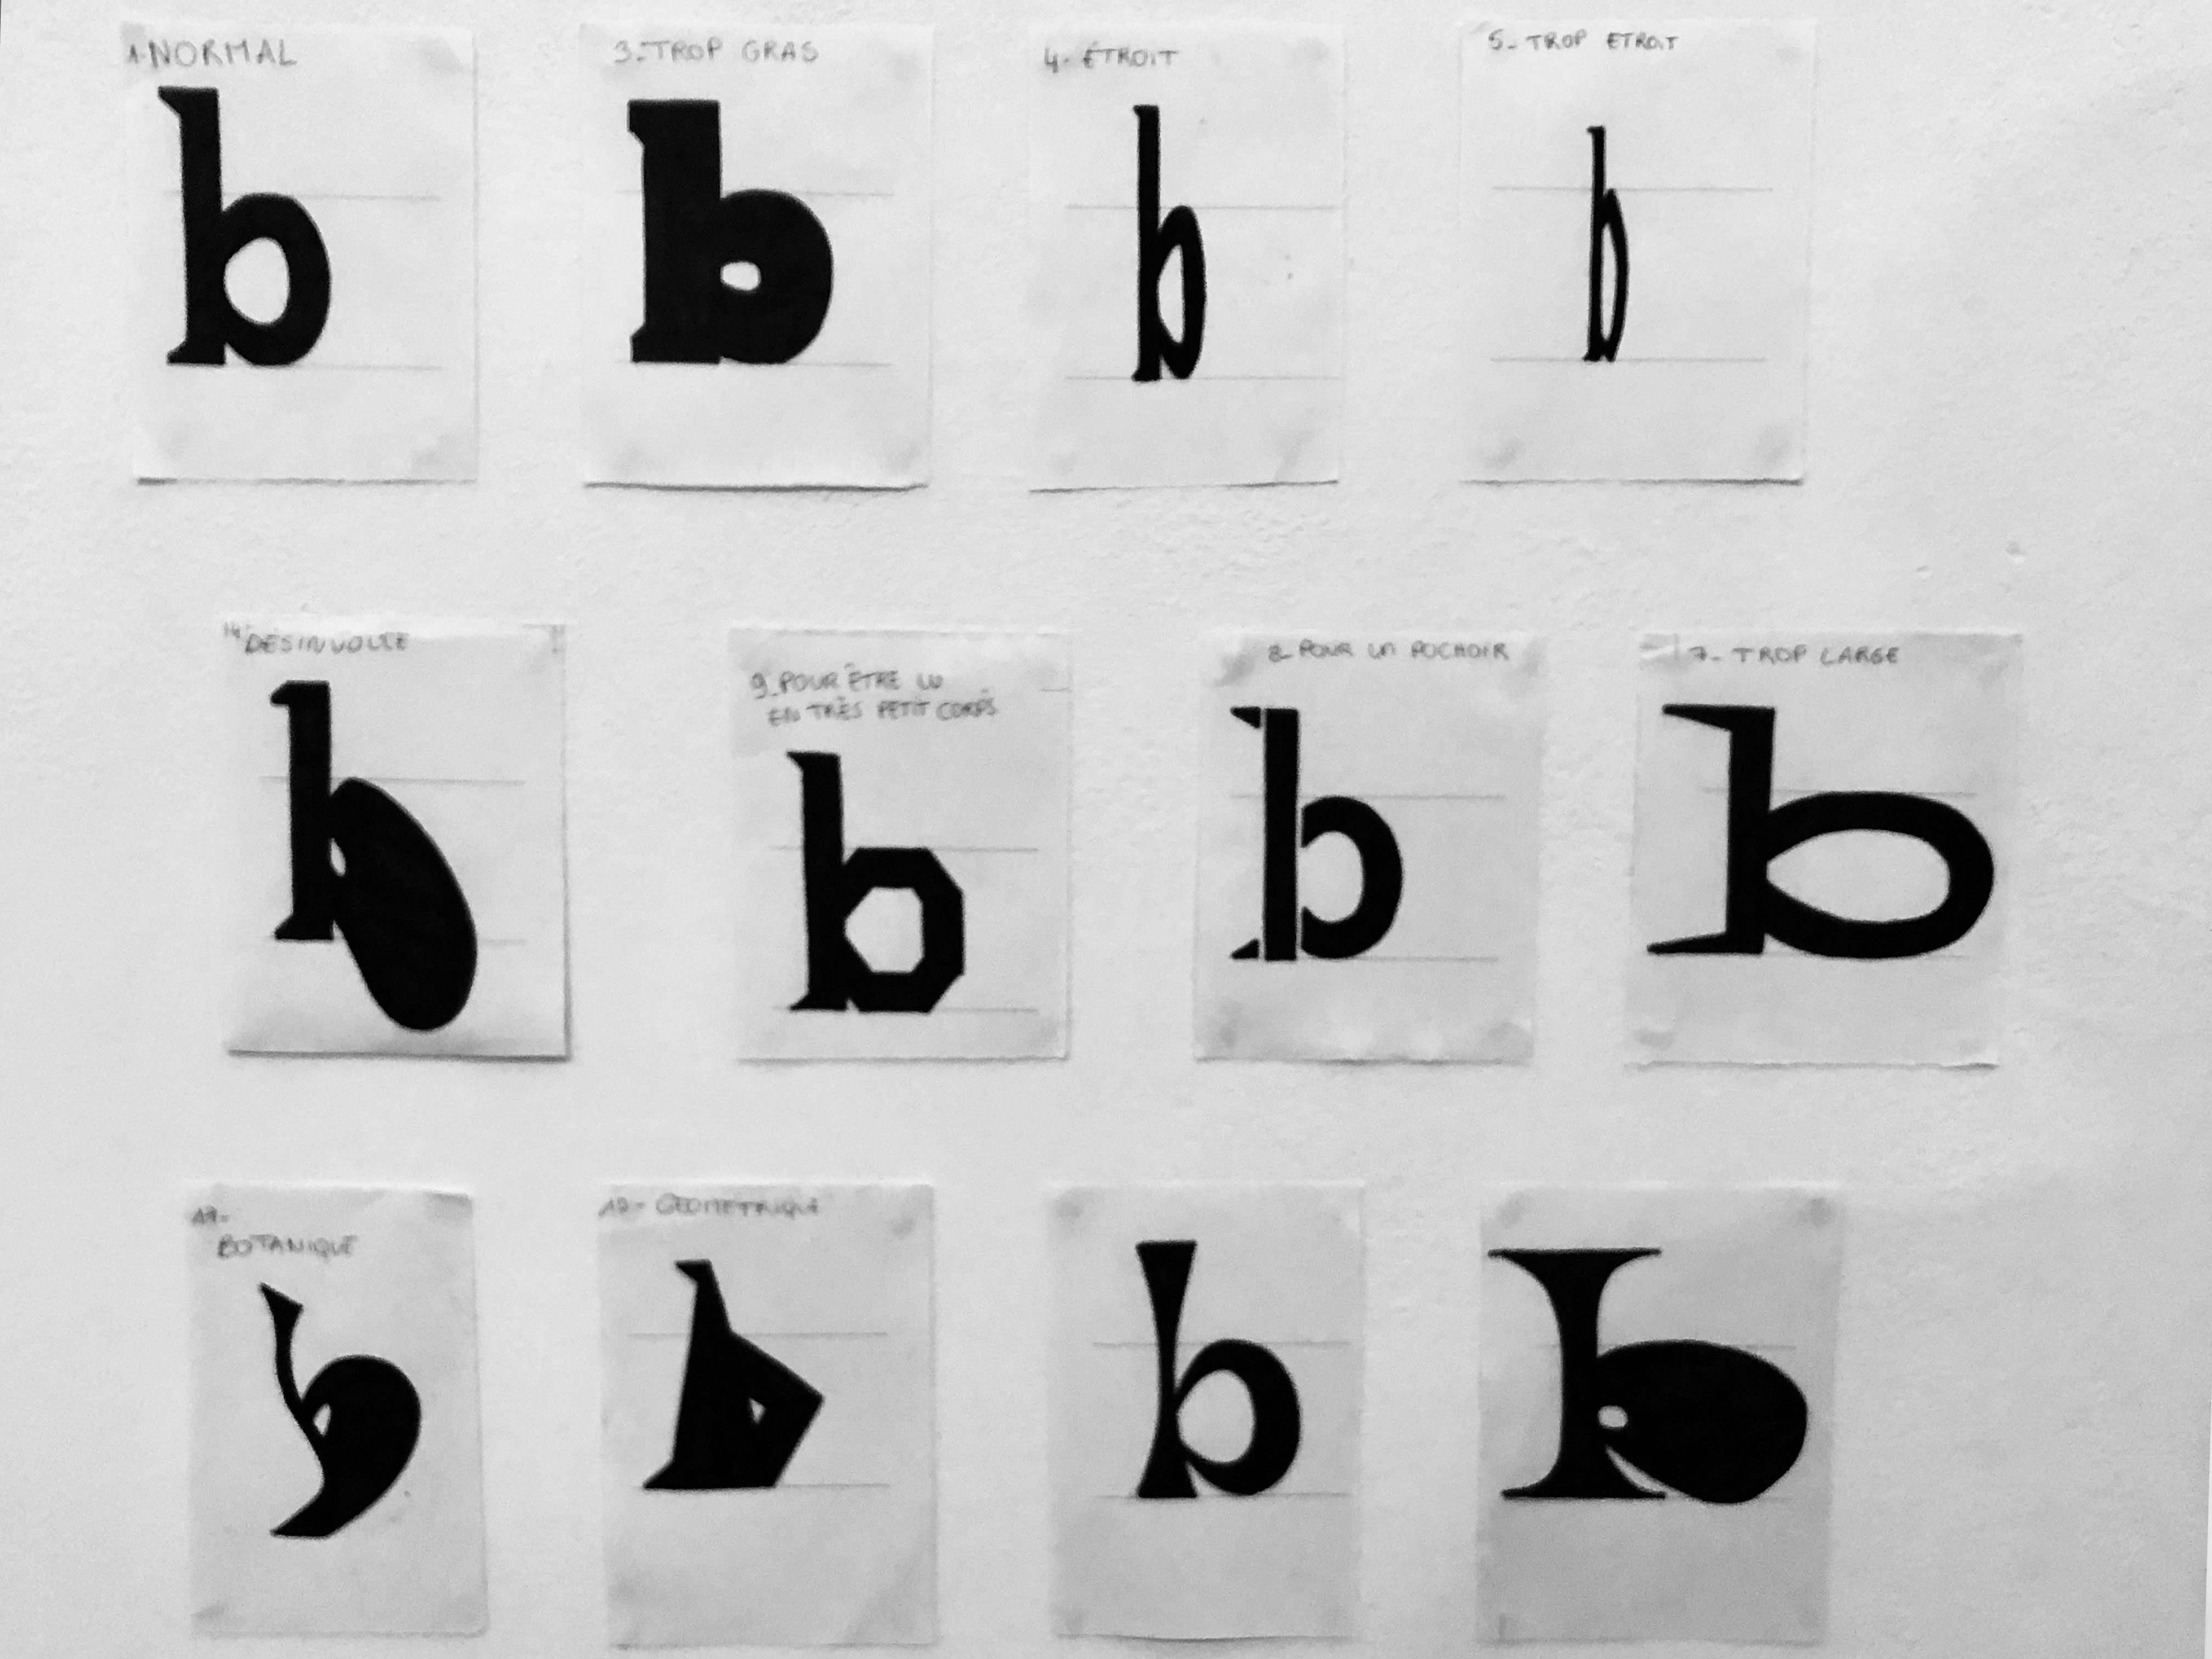 1-NORMAL
b
3-TROP GRAS
b
4- ÉTROIT
b
5- TROP ETROIT
b
14- DESINVOLTE
b
9-POUR ÊTRE LU
EN TRÈS PETIT CORPS
b
8-POUR UN POCHOIR
b
7- TROP LARGE
b
BOTANIQUE
b
GEOMETRIQUE
b
b
b